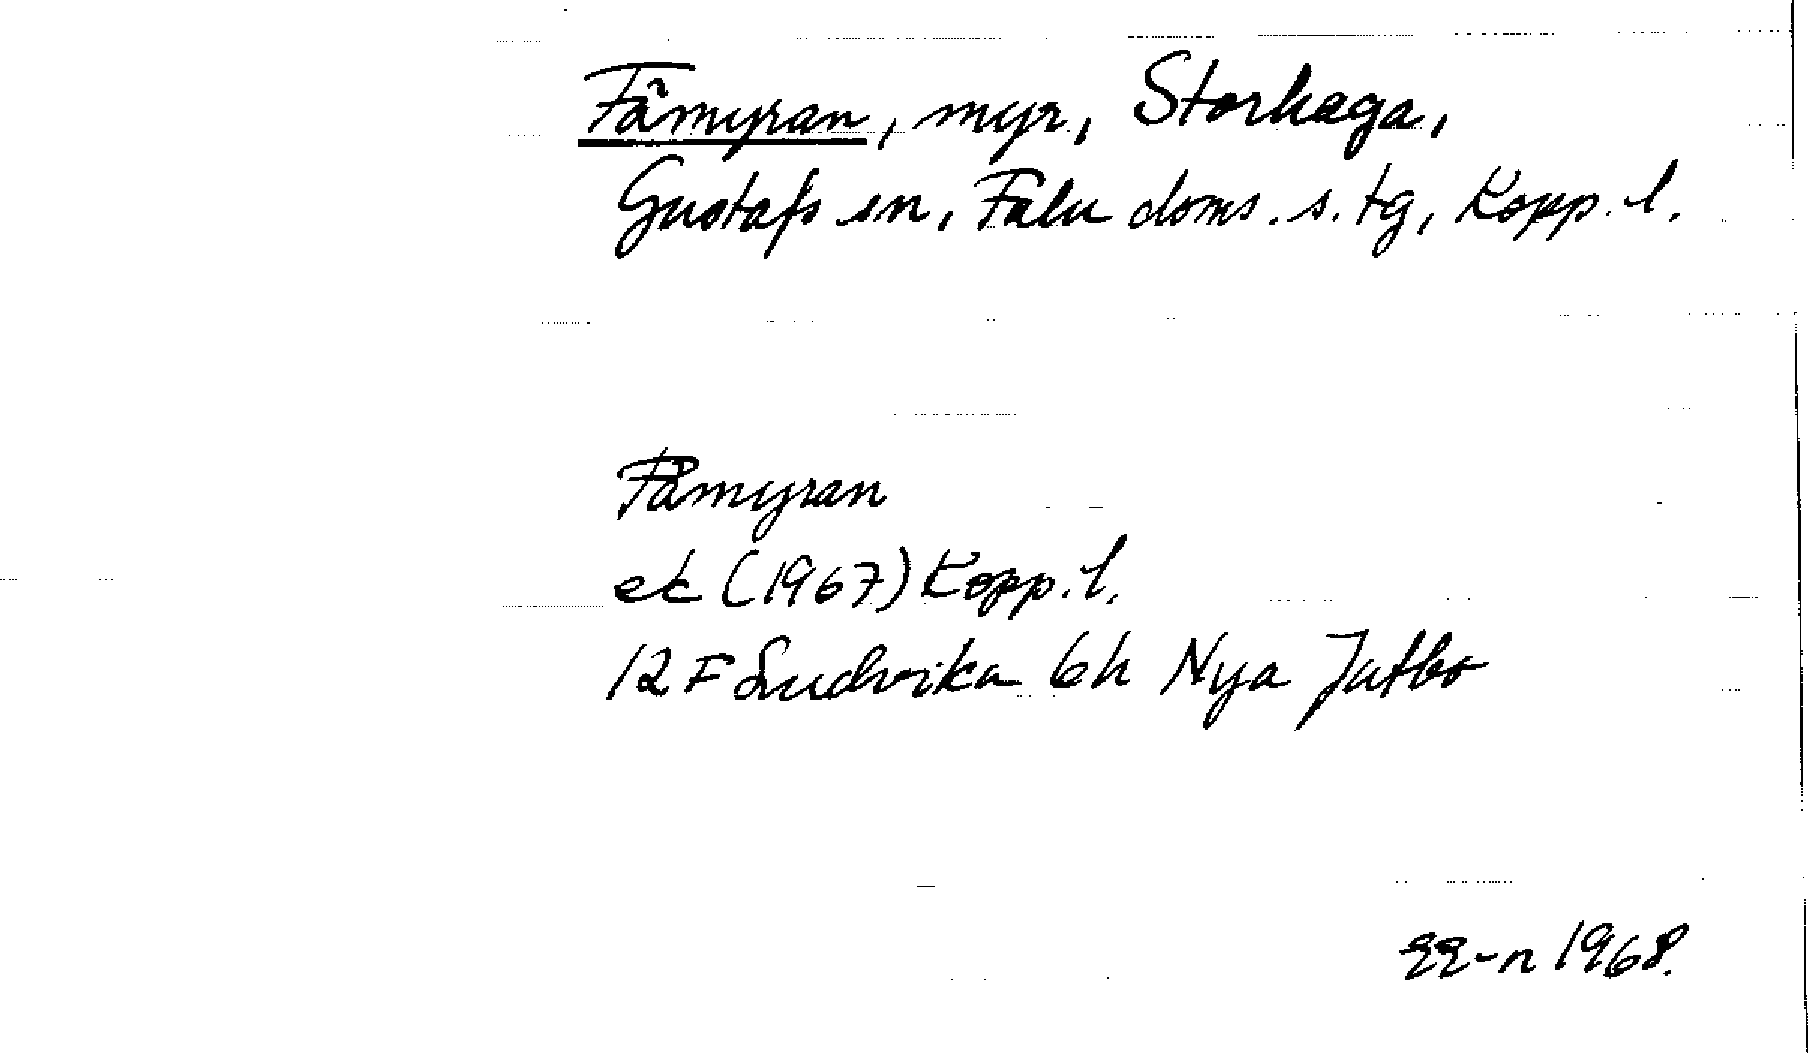 Fåmyran, myr, Storhaga,
Gustafs sn, Falu doms. s. tg, Kopp. l.
Fåmyran
ek (1967) Kopp. l.
12 F Ludvika 6h Nya Jutbo
EE-n 1968.